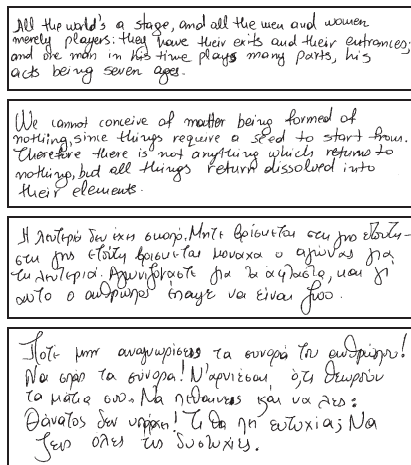 All the world's a stage, and all the men and women
merely players: they have their exits and their entrances;
and one man in his time plays many parts, his
acts being seven ages.
We cannot conceive of matter being formed of
nothing, since things require a seed to start from.
Therefore there is not anything which returns to
nothing, but all things return dissolved into
their elements.
Η λευτεριά δεν έχει σκοπό. Μητε βρίσκεται στη γης ετούτη-
στη γης ετούτη βρισκεται μοναχα ο αγώνας για
τη λευτεριά. Αγωνιζόμαστε για το άφταστο, και γι
αυτο ο ανθρωπος έπαψε να είναι ζωο.
Ποτέ μην αναγνωρίσεις τα συνορα του ανθρώπου!
Να σπας τα σύνορα! Ν'αρνιέσαι ότι θεωρούν
τα μάτια σου. Να πεθαινεις και να λες:
Θάνατος δεν υπάρχει! Τι θα πη ευτυχία; Να
ζεις ολες τις δυστυχίες.